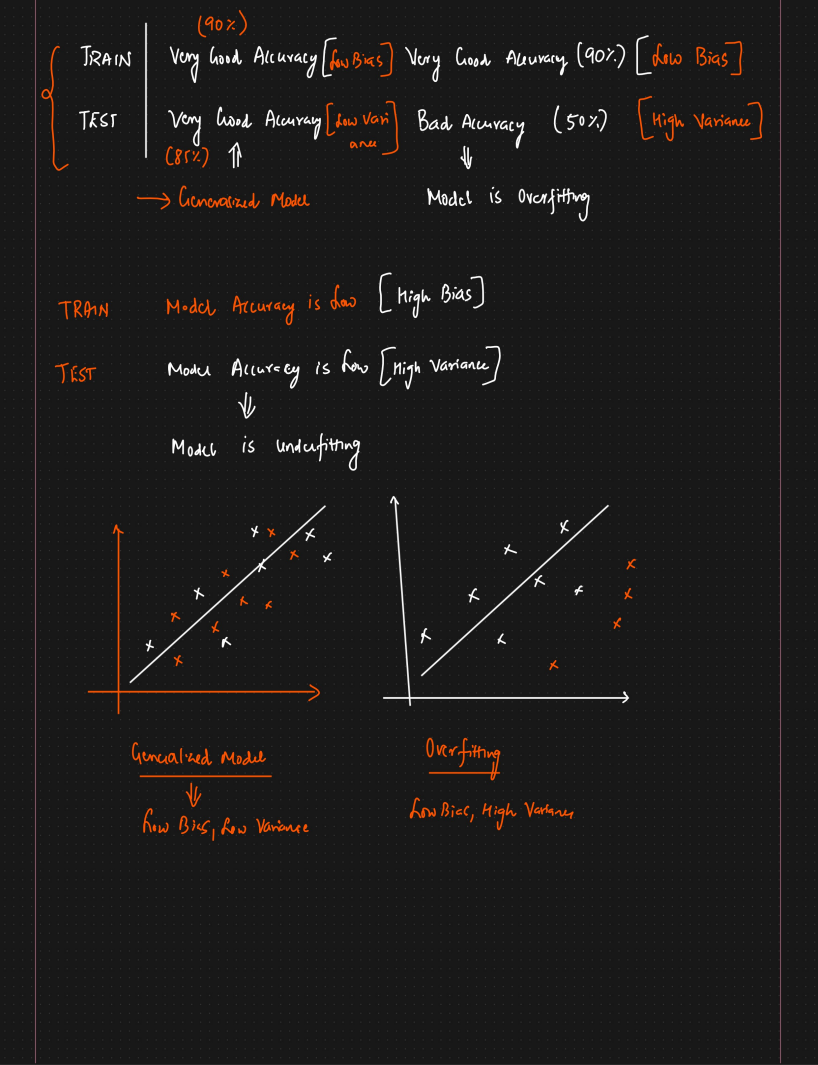 (90%)
TRAIN Very Good Accuracy [Low Bias] Very Good Accuracy (90%) [Low Bias]
TEST Very Good Accuracy [Low Variance] Bad Accuracy (50%) [High Variance]
(85%)
→ Generalized Model Model is Overfitting
TRAIN Model Accuracy is Low [High Bias]
TEST Model Accuracy is Low [High Variance]
Model is underfitting
Generalized Model Overfitting
Low Bias, Low Variance Low Bias, High Variance